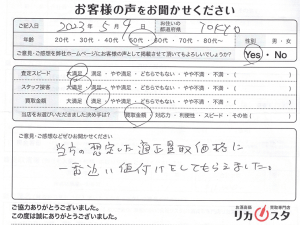 お客様の声をお聞かせください
ご記入日 2023年5月9日 お住いの都道府県 TOKYO
年齢 20代・30代・40代・50代・60代・70代・80代～ 性別 男・女
ご意見・ご感想を弊社ホームページにお客様の声として掲載させて頂いてもよろしいでしょうか? Yes・No
査定スピード 大満足 満足・やや満足・どちらでもない・やや不満・不満
スタッフ接客 大満足 満足・やや満足・どちらでもない・やや不満・不満
買取金額 大満足 満足・やや満足・どちらでもない・やや不満・不満
当店をお選びいただきました決め手は? 買取金額・対応力・利便性・スピード・その他( )
ご意見・ご感想などぜひお聞かせください
当方の想定した適正買取価格に
一番近い値付けをしてもらえました。
ご協力ありがとうございました。
この度は誠にありがとうございました。
お酒高額 買取専門店
リカスタ